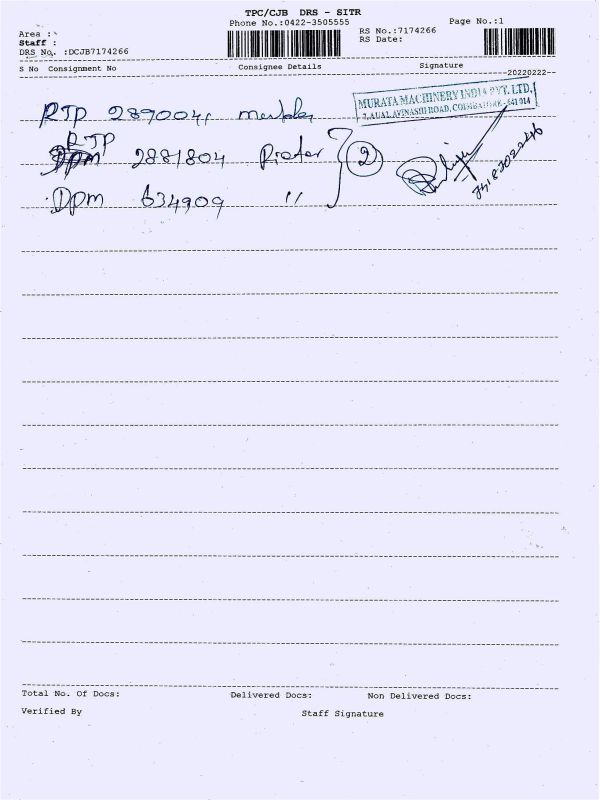 TPC/CJB DRS - SITR
Phone No.:0422-3505555 Page No.:1
Area :
Staff :
DRS No. :DCJB7174266
RS No.:7174266
RS Date:
S No Consignment No Consignee Details Signature
--20220222--
RTP 2890041
MURATA MACHINERY INDIA PVT. LTD.
AVINASHI ROAD, COIMBATORE - 641 014
RTP
Dpm 2881804 2
Dpm 634909 "
Total No. Of Docs: Delivered Docs: Non Delivered Docs:
Verified By Staff Signature